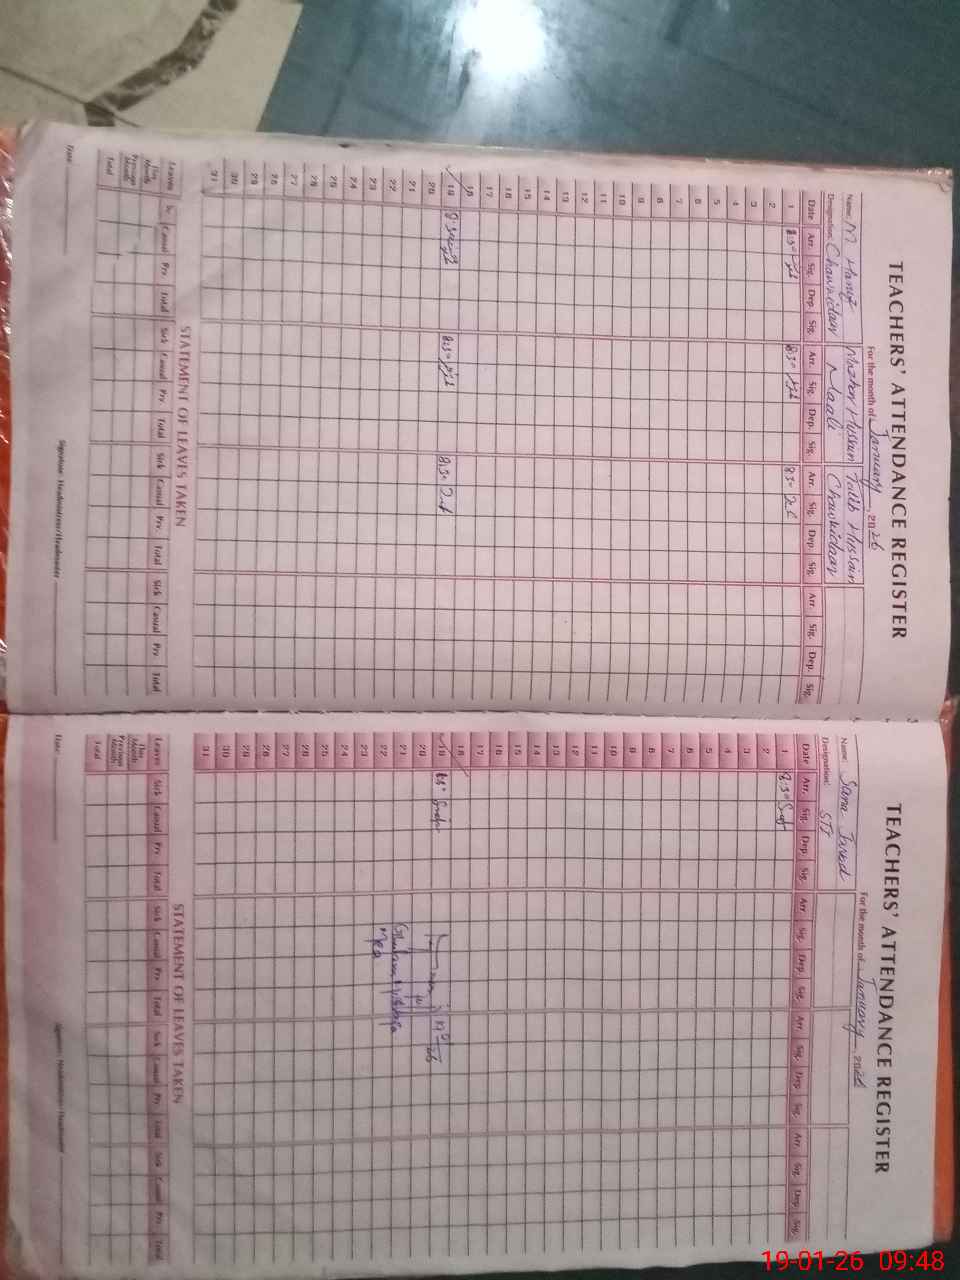 TEACHERS' ATTENDANCE REGISTER
For the month of January, 2026
Name: M Hanif Mazhar Hussain Talib Hussain
Designation: Chawkidaar Maali Chawkidaar
Date Arr. Sig. Dep. Sig. Arr. Sig. Dep. Sig. Arr. Sig. Dep. Sig. Arr. Sig. Dep. Sig.
1 8:30 8:30 8:30
2
3
4
5
6
7
8
9
10
11
12
13
14
15
16
17
18
19 8:30 8:30 8:30
20
21
22
23
24
25
26
27
28
29
30
31
STATEMENT OF LEAVES TAKEN
Leaves Sick Casual Prv. Total Sick Casual Prv. Total Sick Casual Prv. Total Sick Casual Prv. Total
This Month
Previous Month
Total
Date: Signature: Headmistress/Headmaster
TEACHERS' ATTENDANCE REGISTER
For the month of January, 2026
Name: Sana
Designation:
Date Arr. Sig. Dep. Sig. Arr. Sig. Dep. Sig. Arr. Sig. Dep. Sig. Arr. Sig. Dep. Sig.
1 8:30
2
3
4
5
6
7
8
9
10
11
12
13
14
15
16
17
18
19
20
21
22
23
24
25
26
27
28
29
30
31
STATEMENT OF LEAVES TAKEN
Leaves Sick Casual Prv. Total Sick Casual Prv. Total Sick Casual Prv. Total Sick Casual Prv. Total
This Month
Previous Month
Total
Date: Signature: Headmistress/Headmaster
19-01-26 09:48